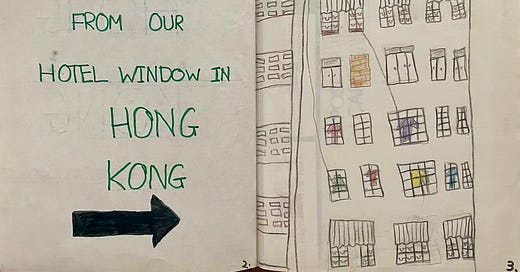 FROM OUR
HOTEL WINDOW IN
HONG
KONG
2.
3.